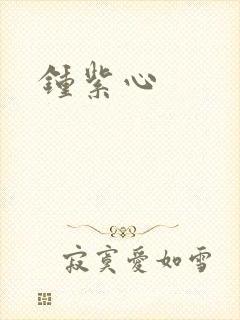 鍾紫心
寂寞愛如雪